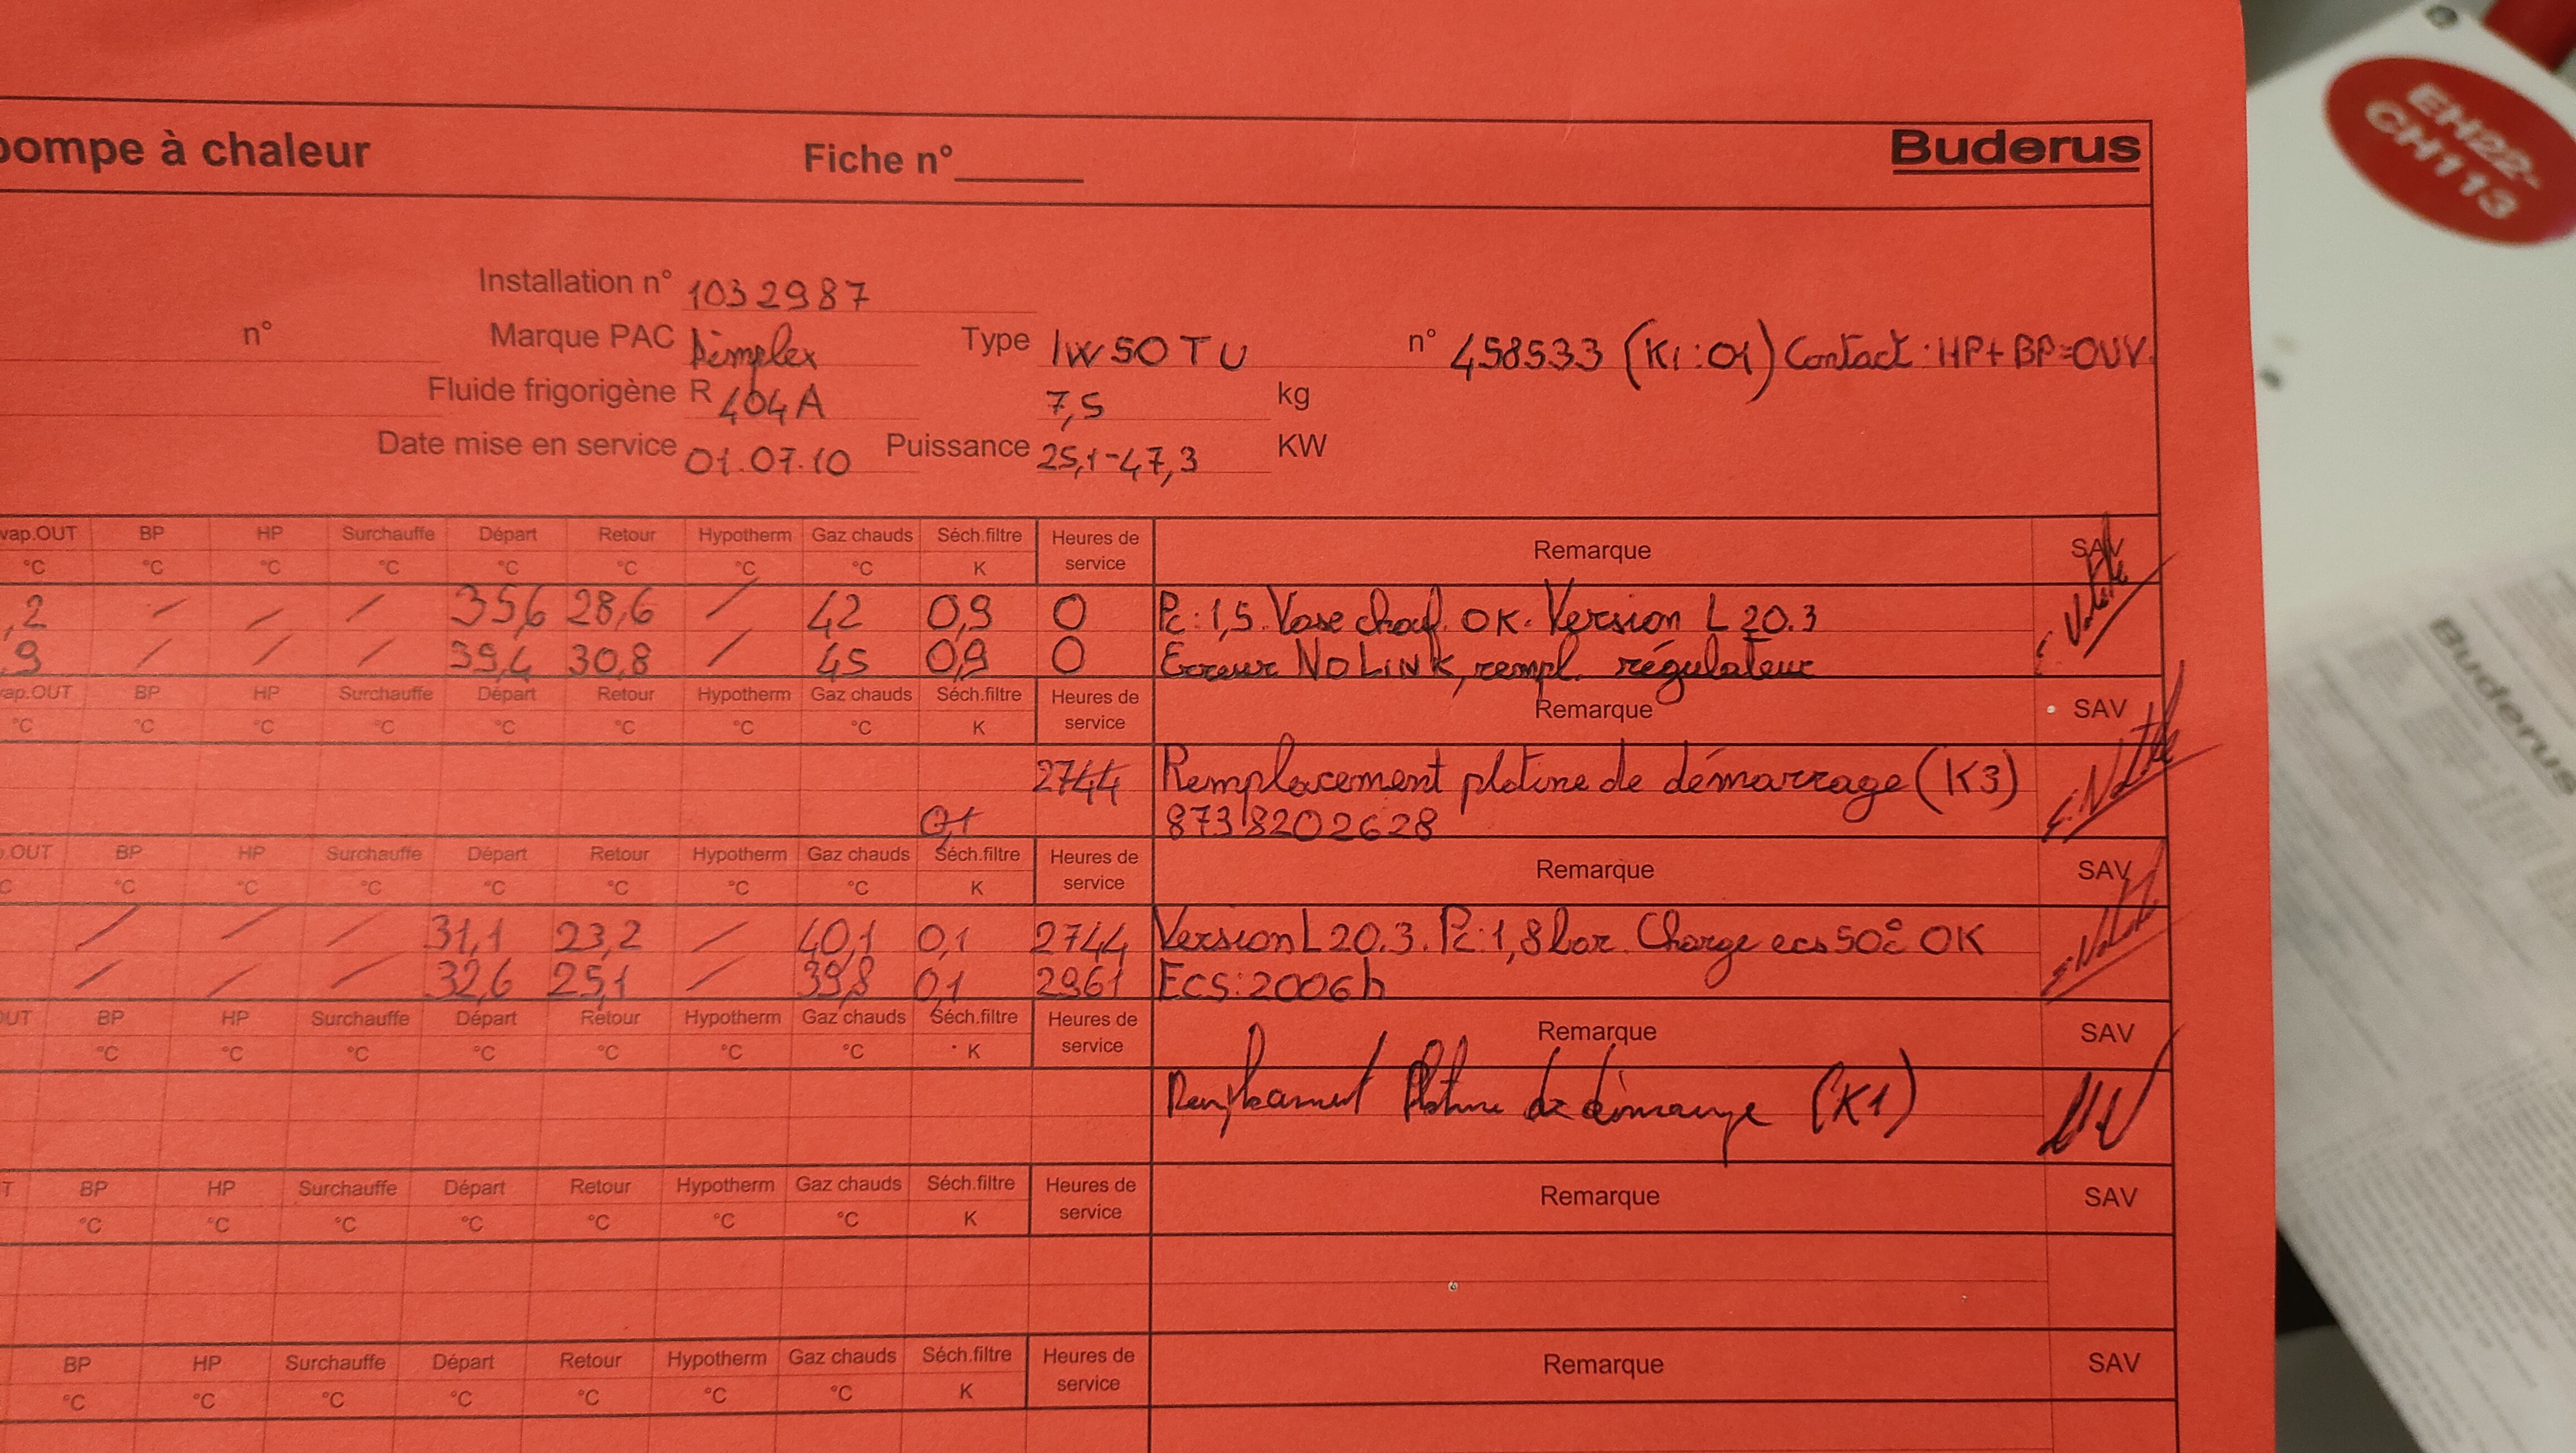 pompe à chaleur Fiche n° Buderus
EH22-
CH113
Installation n° 1032987
n° Marque PAC Dimplex Type IW50TU n° 458533 (K1:01) Contact: HP+BP=OUV.
Fluide frigorigène R 404A 7,5 kg
Date mise en service 01.07.10 Puissance 25,1-47,3 KW
vap.OUT BP HP Surchauffe Départ Retour Hypotherm Gaz chauds Séch.filtre Heures de service Remarque SAV
°C °C °C °C °C °C °C °C K
,2 / / / 35,6 28,6 / 42 0,9 0 Pc: 1,5. Vase chauf. OK. Version L20.3
,9 / / / 39,4 30,8 / 45 0,9 0 Erreur NoLink, rempl. régulateur
vap.OUT BP HP Surchauffe Départ Retour Hypotherm Gaz chauds Séch.filtre Heures de service Remarque SAV
°C °C °C °C °C °C °C °C K
2744 Remplacement platine de démarrage (K3)
0,1 8738202628
p.OUT BP HP Surchauffe Départ Retour Hypotherm Gaz chauds Séch.filtre Heures de service Remarque SAV
°C °C °C °C °C °C °C °C K
/ / / 31,1 23,2 / 40,1 0,1 2744 Version L20.3. Pc: 1,8 bar. Charge ecs 50°c OK
/ / / 32,6 25,1 / 39,8 0,1 2961 Ecs: 2006h
OUT BP HP Surchauffe Départ Retour Hypotherm Gaz chauds Séch.filtre Heures de service Remarque SAV
°C °C °C °C °C °C °C K
Remplacement Platine de démarrage (K1)
T BP HP Surchauffe Départ Retour Hypotherm Gaz chauds Séch.filtre Heures de service Remarque SAV
°C °C °C °C °C °C °C K
BP HP Surchauffe Départ Retour Hypotherm Gaz chauds Séch.filtre Heures de service Remarque SAV
°C °C °C °C °C °C °C K
Buderus